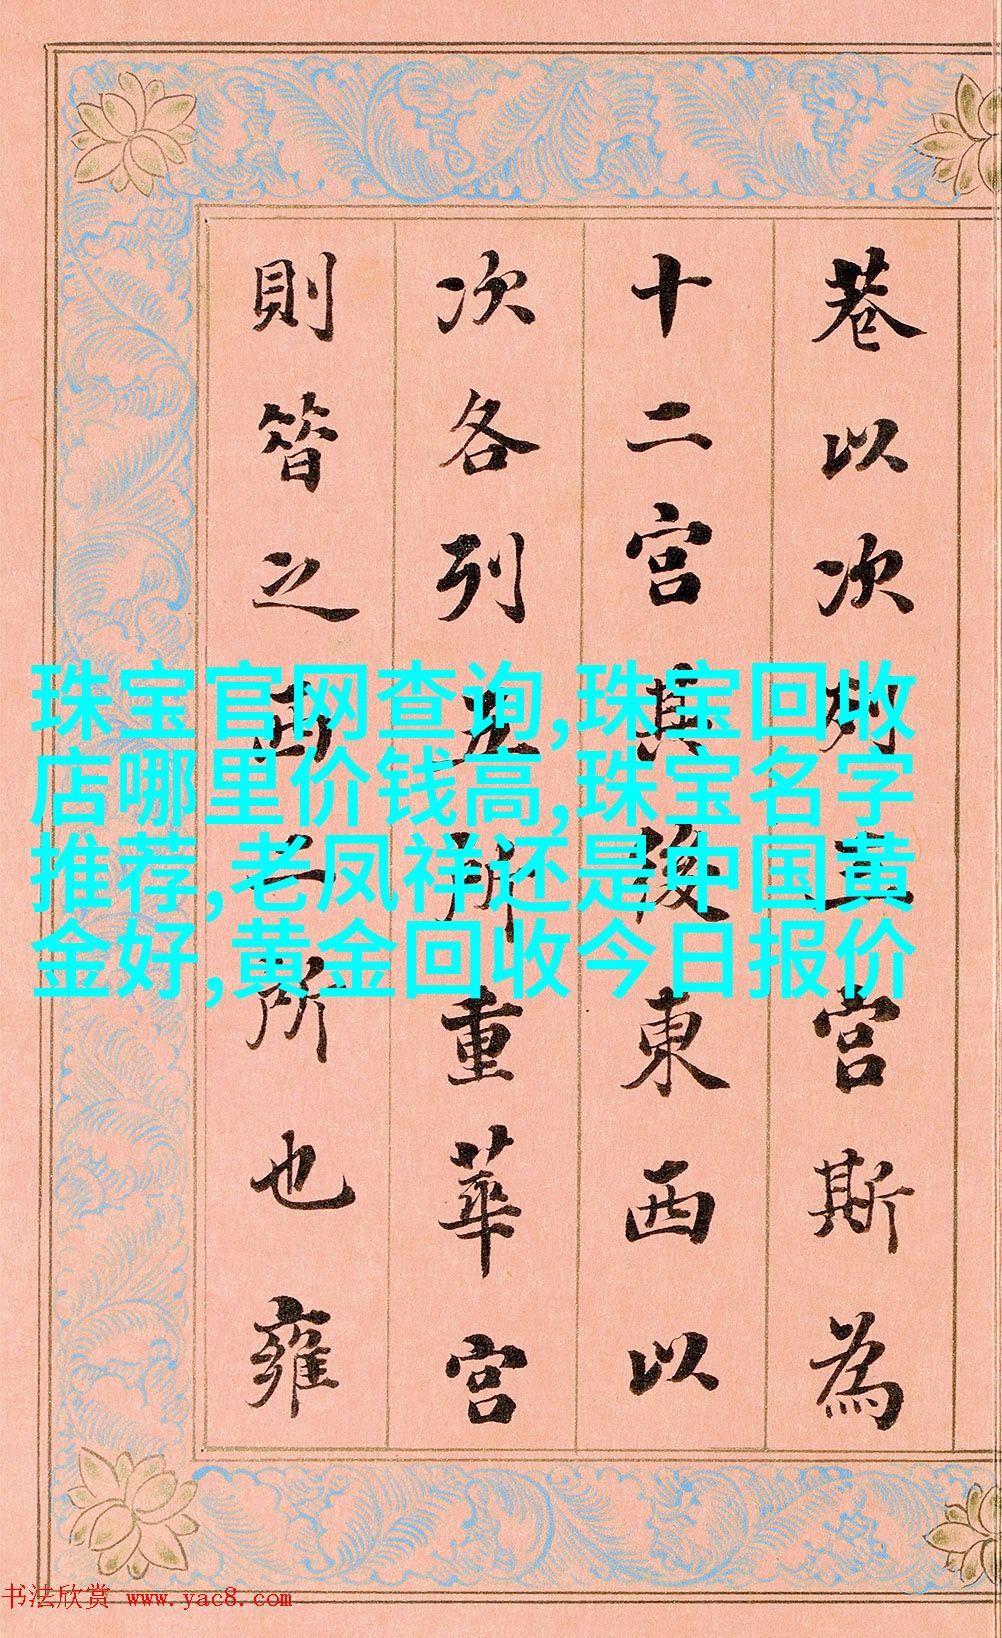 巷以次列五宫斯為
十二宫其後東西以
次各列五所重華宫
則昔之西二所也雍
珠宝官网查询,珠宝回收
店哪里价钱高,珠宝名字
推荐,老凤祥还是中国黄
金好,黄金回收今日报价
书法欣赏 www.yac8.com